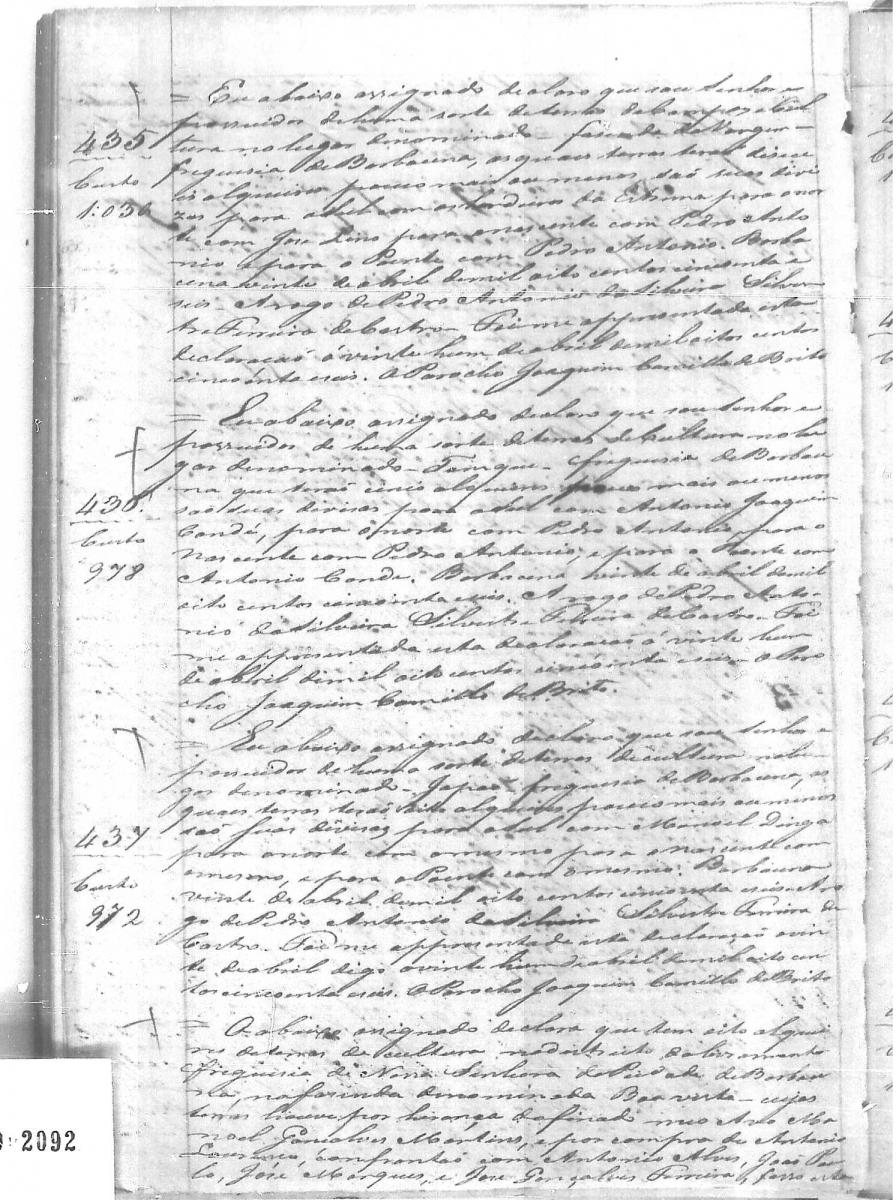 = Eu abaixo assignado declaro que sou Senhor e
possuidor de huma sorte de terras de Campos e Cul
tura no lugar denominado - da Vargem -
freguesia de Barbacena, as quaes terras teraó
alqueires pouco mais ou menos, saó suas divi
zas para o Sul com os herdeiros da para o nor
te com José Lino para o nascente com Pedro Anto
nio e para o Poente com Pedro Antonio. Barba
cena vinte de abril de mil oito centos cincoenta e
seis. A rogo de Pedro Antonio da Silveira Silves
tre Ferreira de Castro - Foi me appresentada esta
declaraçaõ á vinte hum de abril de mil oito centos
cincoenta e seis. O Parocho Joaquim Camillo de Brito
435
Custo
1:030
= Eu abaixo assignado declaro que sou Senhor e
possuidor de huma sorte de terras de Cultura no lu
gar denominado - freguesia de Barbace
na que teraó cinco alqueires pouco mais ou menos
saó suas divisas para o Sul com Antonio Joaquim
Condé, para o norte com Pedro Antonio, para o
Nascente com Pedro Antonio, e para o Poente com
Antonio Conde. Barbacena vinte de abril de mil
oito centos cincoenta e seis. A rogo de Pedro Anto
nio da Silveira Silvestre Ferreira de Castro - Foi
me appresentada esta declaraçaõ á vinte hum
de abril de mil oito centos cincoenta e seis - O Paro
cho Joaquim Camillo de Brito.
436
Custo
978
= Eu abaixo assignado declaro que sou Senhor e
possuidor de huma sorte de terras de cultura no lu
gar denominado - Japaó - freguesia de Barbacena, as
quaes terras teraó oito alqueires pouco mais ou menos
saó suas divisas para o Sul com Manoel
para o norte com o mesmo para o nascente com
o mesmo, e para o Poente com o mesmo. Barbacena
vinte de abril de mil oito centos cincoenta e seis A ro
go de Pedro Antonio da Silveira Silvestre Ferreira de
Castro. Foi me appresentada esta declaraçaõ a vin
te de abril digo a vinte hum de abril de mil oito cen
tos cincoenta e seis. O Parocho Joaquim Camillo de Brito
437
Custo
972
= O abaixo assignado declara que tem oito alquei
res de terras de cultura no destricto do Livramento
Freguesia de Nossa Senhora da Piedade de Barbace
na, na fazenda denominada Boa vista - cujas
terras houve por herança do finado meo Avo Ma
noel Gonçalves Martins, e por compra de Antonio
Lourenço, confrontaó com Antonio Alves, Joaó
José Marques, e José Gonçalves Ferreira,
2092